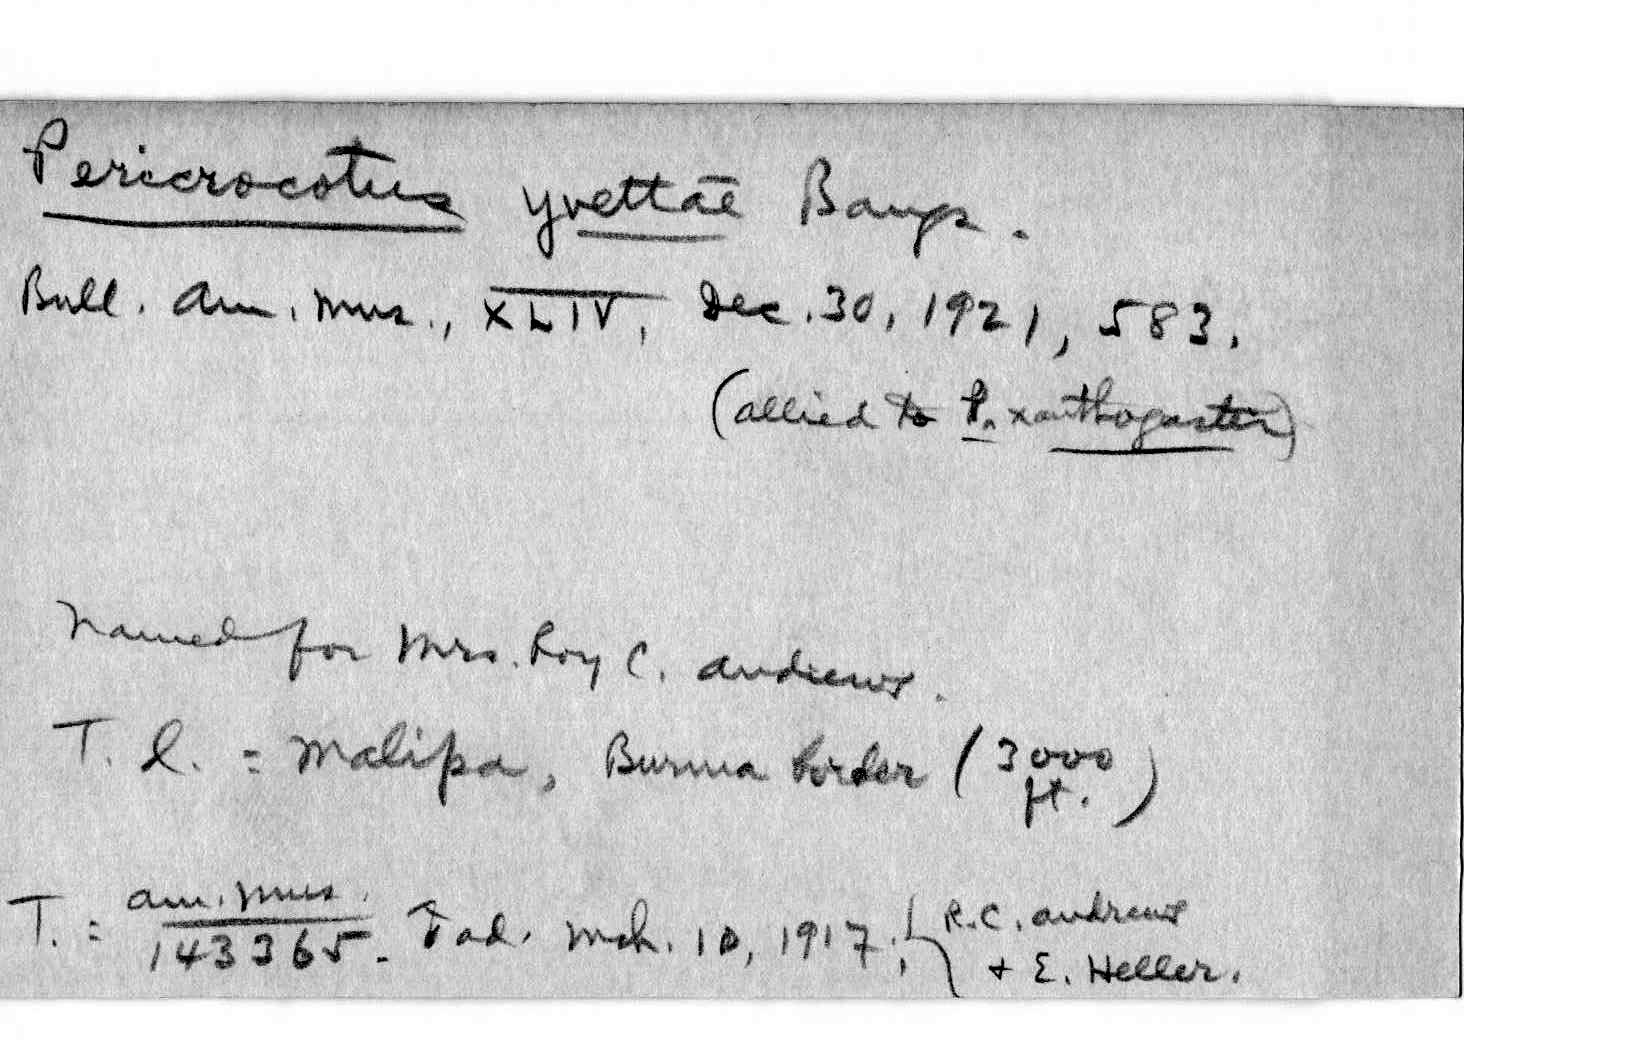 Pericrocotus yvettae Bangs.
Bull. Am. Mus., XLIV, Dec. 30, 1921, 583.
(allied to P. xanthogaster)
Named for Mrs. Roy C. Andrews.
T. l. = Malipa, Burma border (3000 ft.)
T. = Am. Mus. 143365. ♂ ad. Mch. 10, 1917; R.C. Andrews
+ E. Heller.